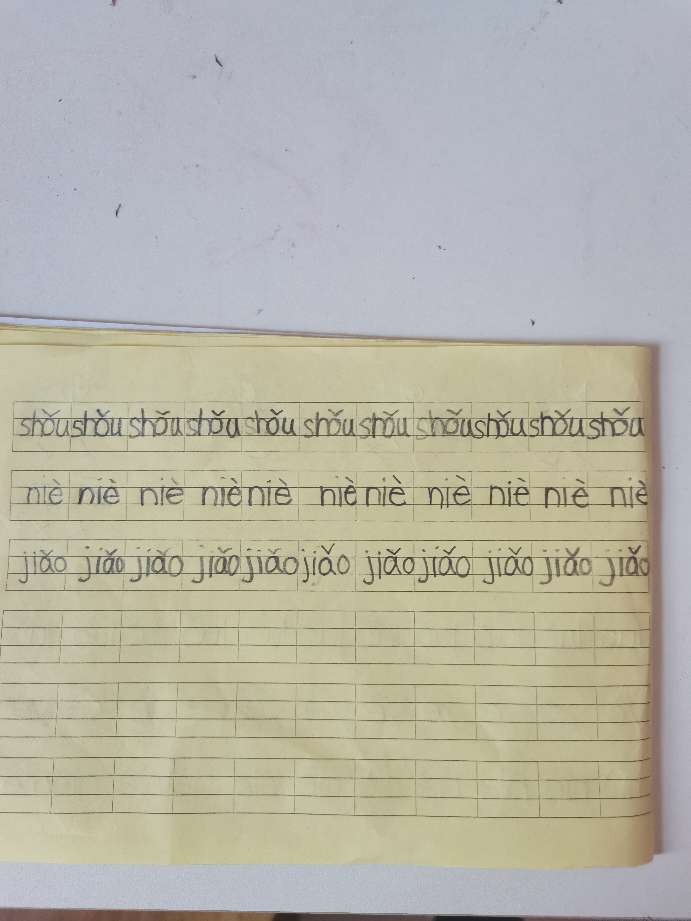 shǒu shǒu shǒu shǒu shǒu shǒu shǒu shǒu shǒu shǒu shǒu
niè niè niè niè niè niè niè niè niè niè niè
jiǎo jiǎo jiǎo jiǎo jiǎo jiǎo jiǎo jiǎo jiǎo jiǎo jiǎo